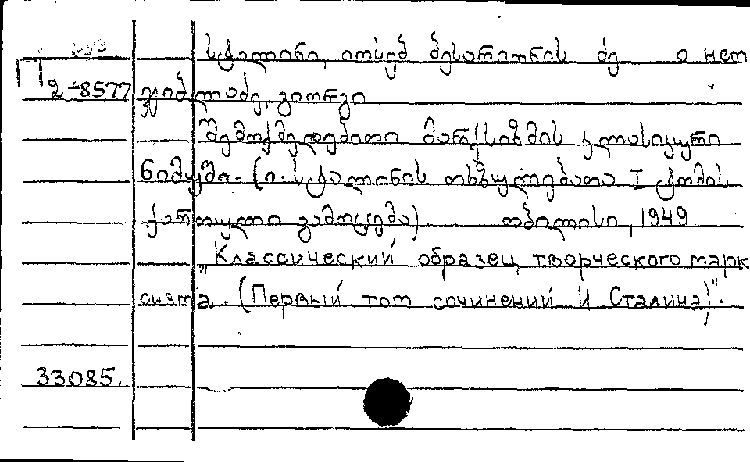 სტალინი, იოსებ ბესარიონის ძე о нем
П 2-8577 ჯიბლაძე, გიორგი
შემოქმედებითი მარქსიზმის კლასიკური
ნიმუში. (ი. სტალინის თხზულებათა I ტომის
ქართული გამოცემა) თბილისი, 1949
„Классический образец творческого марк
сизма. (Первый том сочинений И Сталина)".
33085.